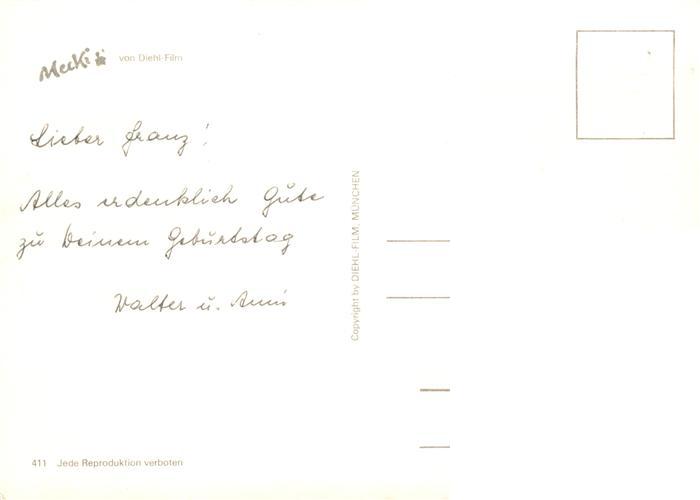 Mecki von Diehl-Film
Lieber Franz!
Alles erdenklich Gute
zu Deinem Geburtstag
Walter u. Anni
Copyright by DIEHL-FILM, MÜNCHEN
411 Jede Reproduktion verboten